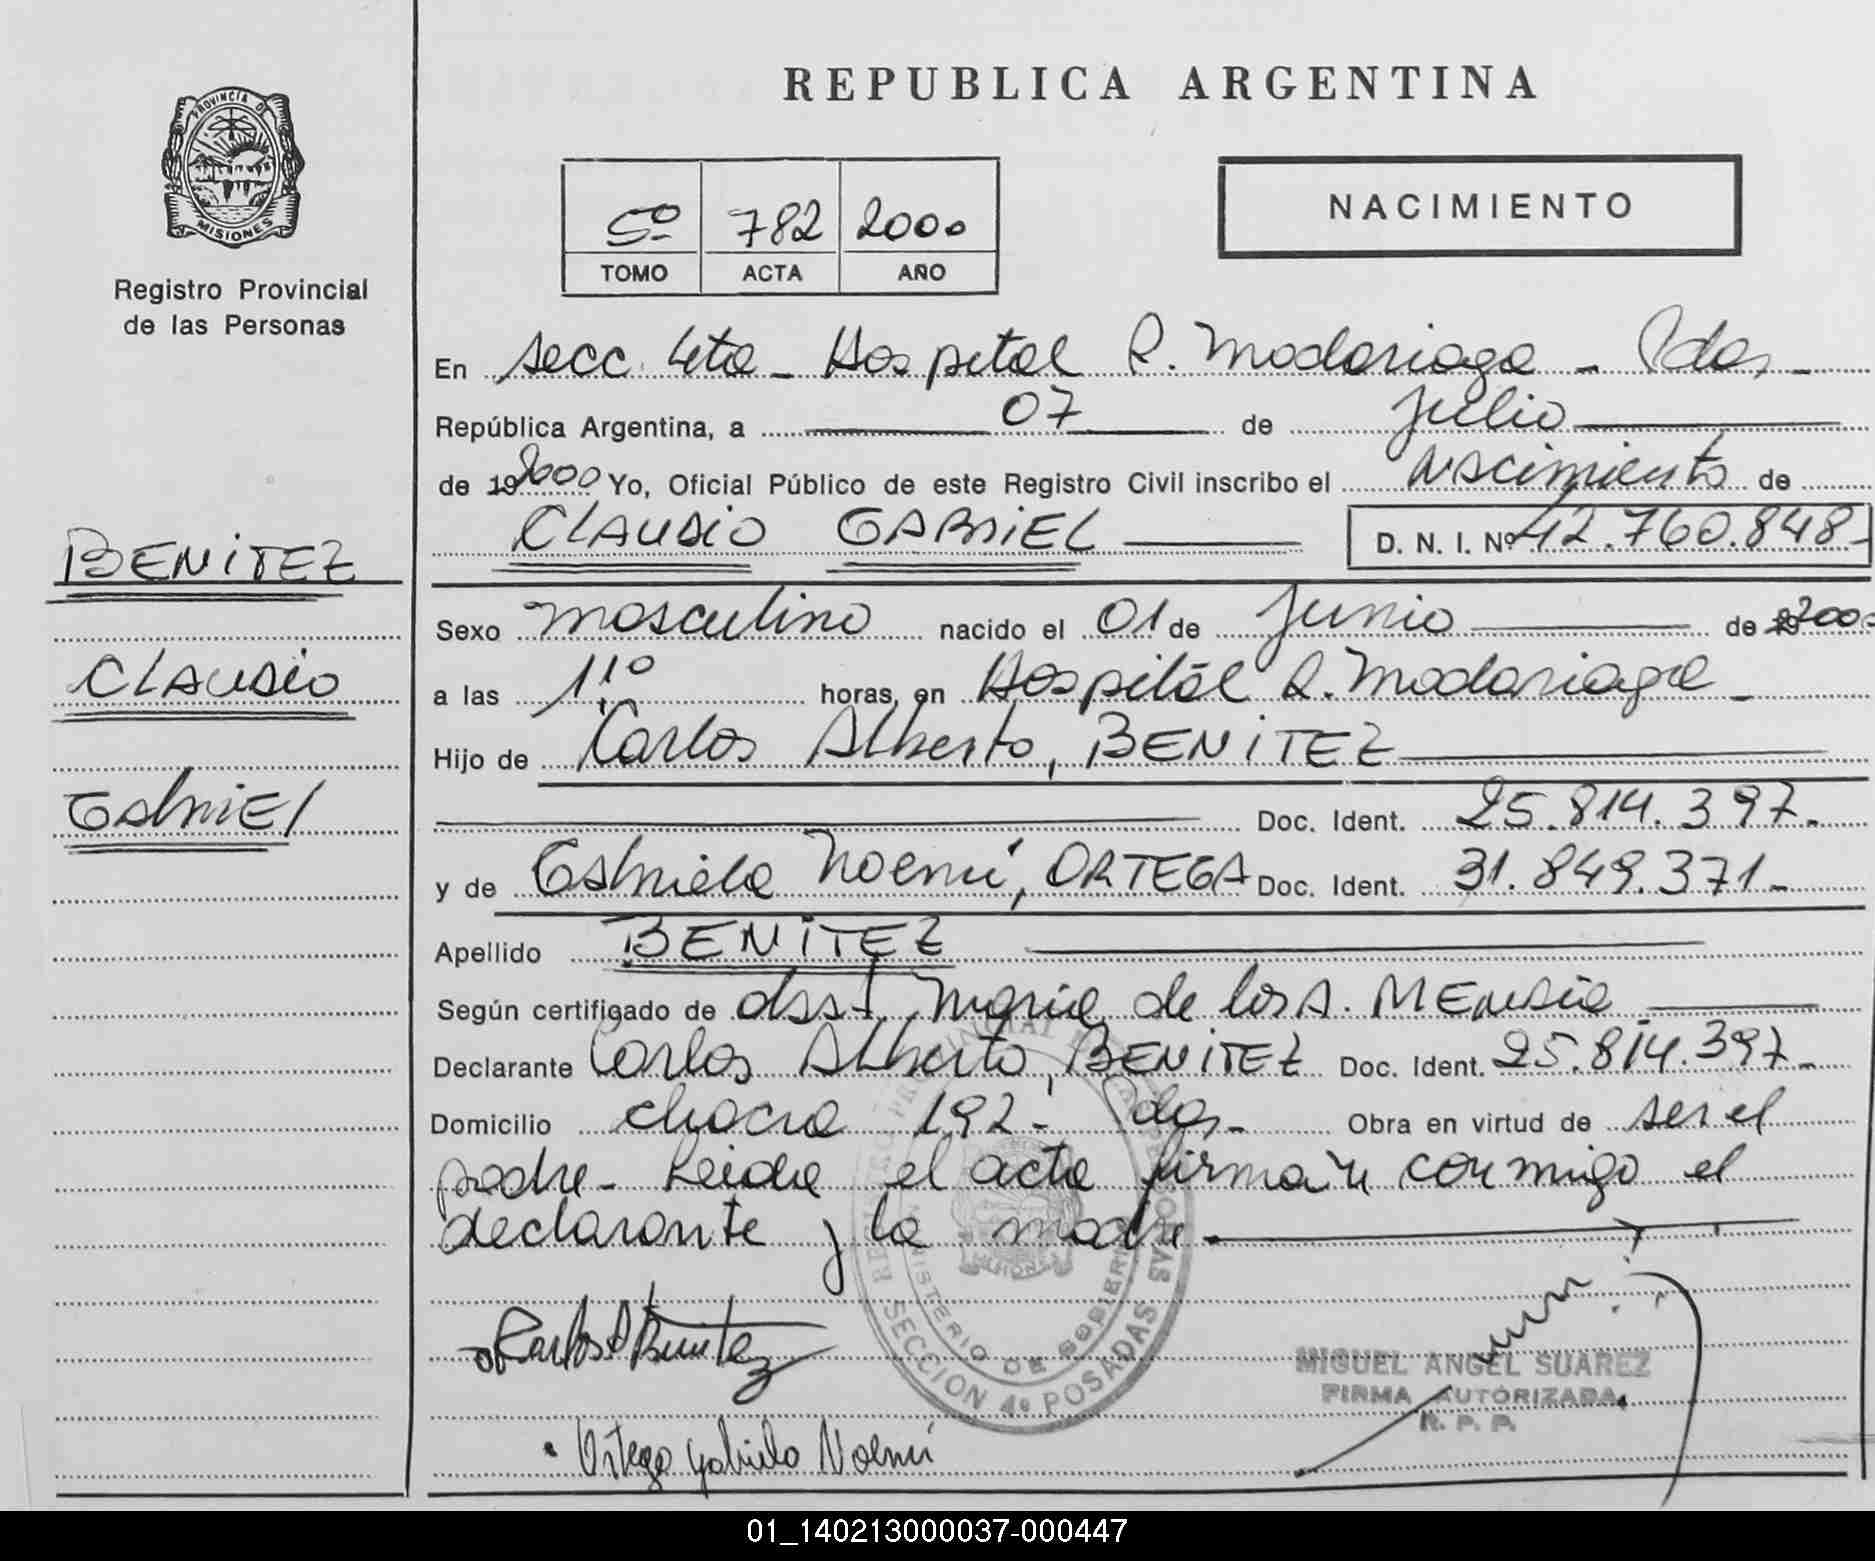 PROVINCIA DE
MISIONES
Registro Provincial
de las Personas
BENITEZ
CLAUDIO
GABRIEL
REPUBLICA ARGENTINA
5º 782 2000
TOMO ACTA AÑO
NACIMIENTO
En Secc. 4ta - Hospital R. Madariaga - Pdas -
República Argentina, a 07 de Julio
de 19 2000 Yo, Oficial Público de este Registro Civil inscribo el Nacimiento de
CLAUDIO GABRIEL D. N. I. Nº 42.760.848-
Sexo masculino nacido el 01 de Junio de 2000
a las 11º horas, en Hospital R. Madariaga -
Hijo de Carlos Alberto, BENITEZ
Doc. Ident. 25.814.397.
y de Gabriela Noemí, ORTEGA Doc. Ident. 31.849.371-
Apellido BENITEZ
Según certificado de María de los A. MENDEZ
Declarante Carlos Alberto, BENITEZ Doc. Ident. 25.814.397-
Domicilio chacra 192 - Pdas - Obra en virtud de ser el
padre - Leida el acta firman conmigo el
declarante y la madre.
Carlos A Benitez
REGISTRO PROVINCIAL DE LAS PERSONAS
MINISTERIO DE GOBIERNO
SECCION 4º POSADAS
MIGUEL ANGEL SUAREZ
FIRMA AUTORIZADA
R. P. P.
Ortega Gabriela Noemí
01_140213000037-000447